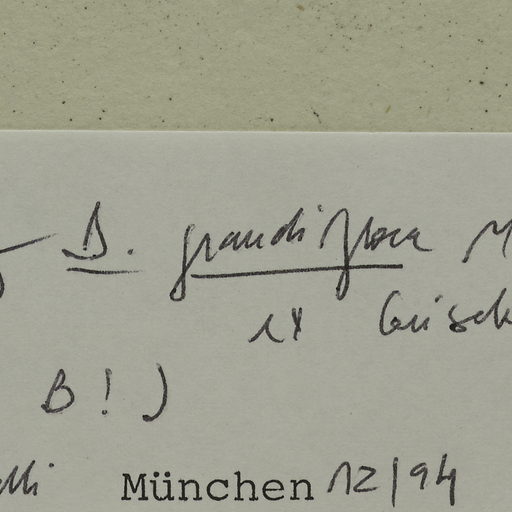 D. grandiflora M
ex Griseb
B!)
lli München 12/94